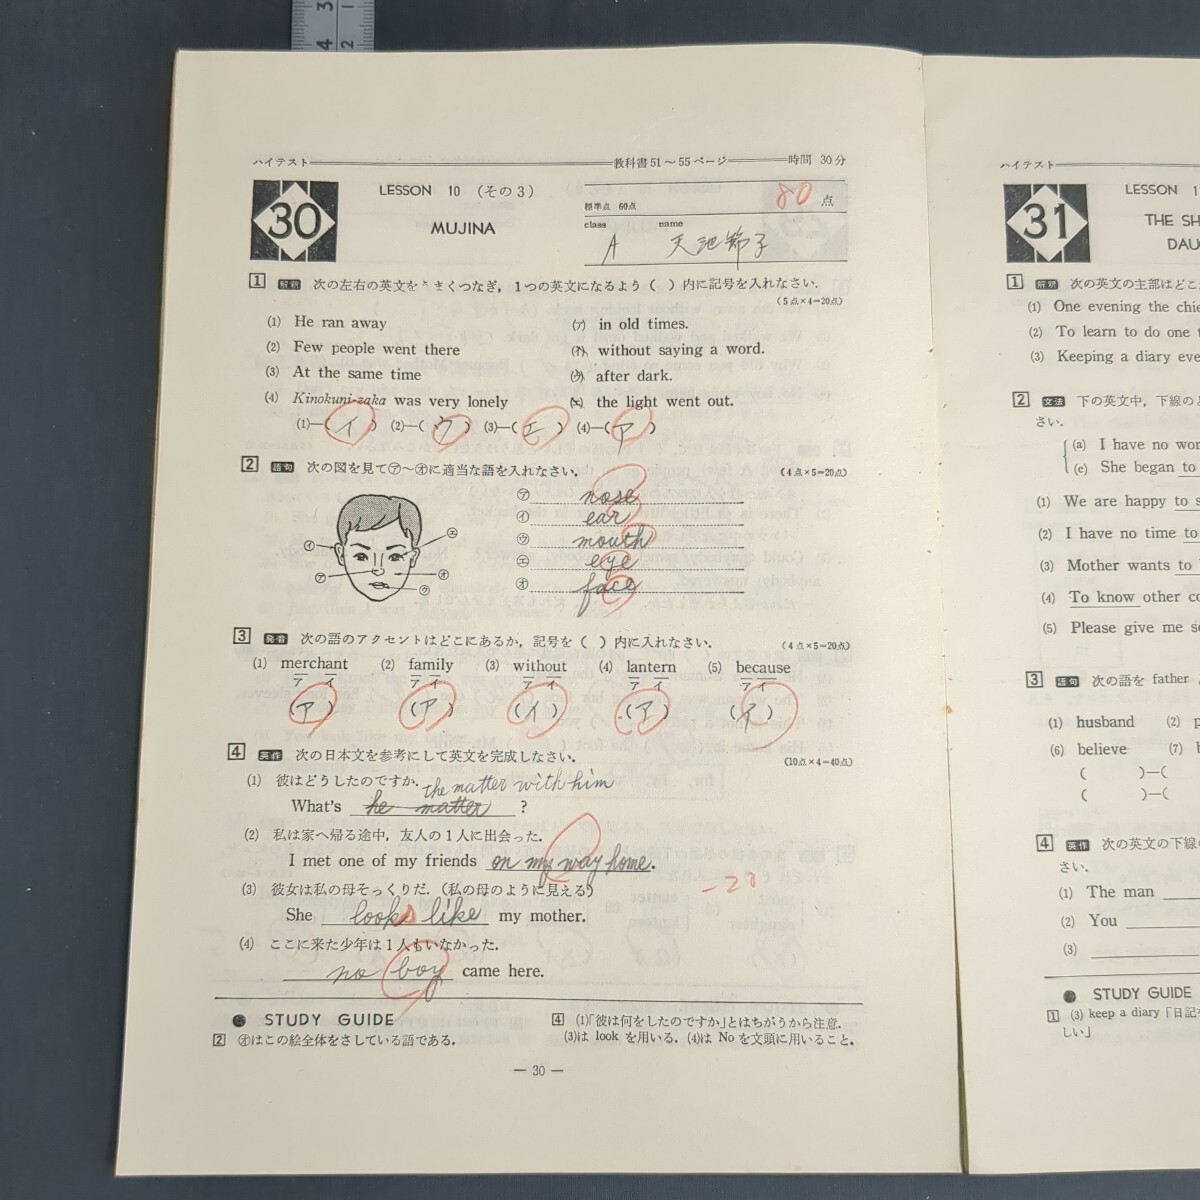 3
4
1
2
ハイテスト 教科書51～55ページ 時間 30分
30
LESSON 10 (その3)
MUJINA
80点
標準点 60点
class name
A 天池節子
1 解釈 次の左右の英文をうまくつなぎ，1つの英文になるよう（ ）内に記号を入れなさい．
（5点×4＝20点）
(1) He ran away (ア) in old times.
(2) Few people went there (イ) without saying a word.
(3) At the same time (ウ) after dark.
(4) Kinokuni-zaka was very lonely (エ) the light went out.
(1)—(イ) (2)—(ウ) (3)—(エ) (4)—(ア)
2 語句 次の図を見て㋐～㋔に適当な語を入れなさい． （4点×5＝20点）
㋐ nose
㋑ ear
㋒ mouth
㋓ eye
㋔ face
㋑ ㋓
㋐ ㋔
㋒
3 発音 次の語のアクセントはどこにあるか，記号を（ ）内に入れなさい． （4点×5＝20点）
(1) merchant (2) family (3) without (4) lantern (5) because
ア イ ア イ ア イ ア イ ア イ
(ア) (ア) (イ) (ア) (イ)
4 英作 次の日本文を参考にして英文を完成しなさい． （10点×4＝40点）
(1) 彼はどうしたのですか．
the matter with him
What's he matter ?
(2) 私は家へ帰る途中，友人の1人に出会った．
I met one of my friends on my way home.
(3) 彼女は私の母そっくりだ．（私の母のように見える）
-20
She looks like my mother.
(4) ここに来た少年は1人もいなかった．
no boy came here.
● STUDY GUIDE
2 ㋔はこの絵全体をさしている語である．
4 (1)「彼は何をしたのですか」とはちがうから注意．
(3)は look を用いる．(4)は No を文頭に用いること．
— 30 —
ハイテスト
31
LESSON 1
THE SH
DAU
1 解釈 次の英文の主部はどこ
(1) One evening the chie
(2) To learn to do one t
(3) Keeping a diary eve
2 文法 下の英文中，下線のと
さい．
(a) I have no wor
(c) She began to
(1) We are happy to s
(2) I have no time to
(3) Mother wants to
(4) To know other co
(5) Please give me so
3 語句 次の語を father
(1) husband (2) p
(6) believe (7) b
( )—(
( )—(
4 英作 次の英文の下線
さい．
(1) The man
(2) You
(3)
● STUDY GUIDE
1 (3) keep a diary「日記を
しい」